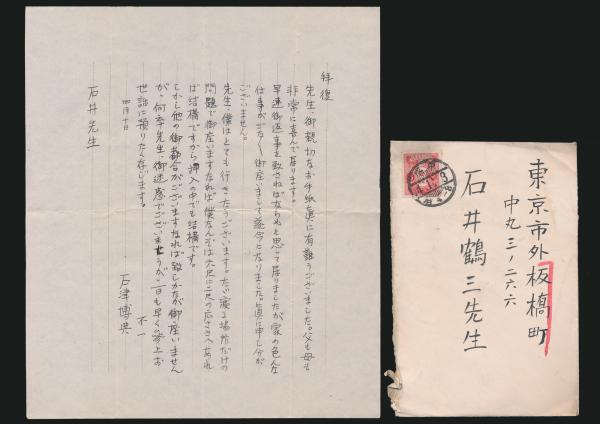 拝復
先生、御親切なお手紙を眞に有難うございました。父も母も
非常に喜んで居ります。
早速御返事を致さねばならぬと思って居りましたが、家の色んな
仕事が少なく御座いまして遂今になりました。眞に申し分が
ございません。
先生、僕はとても行きたうございます。たゞ寝る場所だけの
問題で御座いますなれば僕なんぞは六尺に二尺の広ささへあれ
ば結構ですから押入の中でも結構です。
しかし他の御都合がございますなれば致しかたが御座いません
が、何卒先生、御迷惑でございませうが一日も早く参上お
世話に預りたく存じます。
不一
四月十日
石津博典
石井先生
東京市外板橋町
中丸三ノ二六六
石井鶴三先生